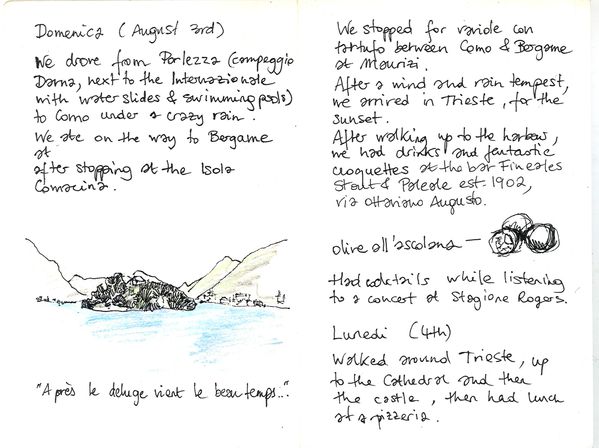 Domenica (August 3rd)
We drove from Porlezza (campeggio
Darna, next to the Internazionale
with water slides & swimming pools)
to Como under a crazy rain.
We ate on the way to Bergame
at
after stopping at the Isola
Comacina.
"Après le deluge vient le beau temps...".
We stopped for raviole con
tartufo between Como & Bergame
at Maurizi.
After a wind and rain tempest,
we arrived in Trieste, for the
sunset.
After walking up to the harbour,
we had drinks and fantastic
croquettes at the bar
Stout & Paleale est. 1902,
via Ottaviano Augusto.
olive all'ascolana —
Had cocktails while listening
to a concert at Stagione Rogers.
Lunedi (4th)
Walked around Trieste, up
to the Cathedral and then
the castle, then had lunch
at a pizzeria.